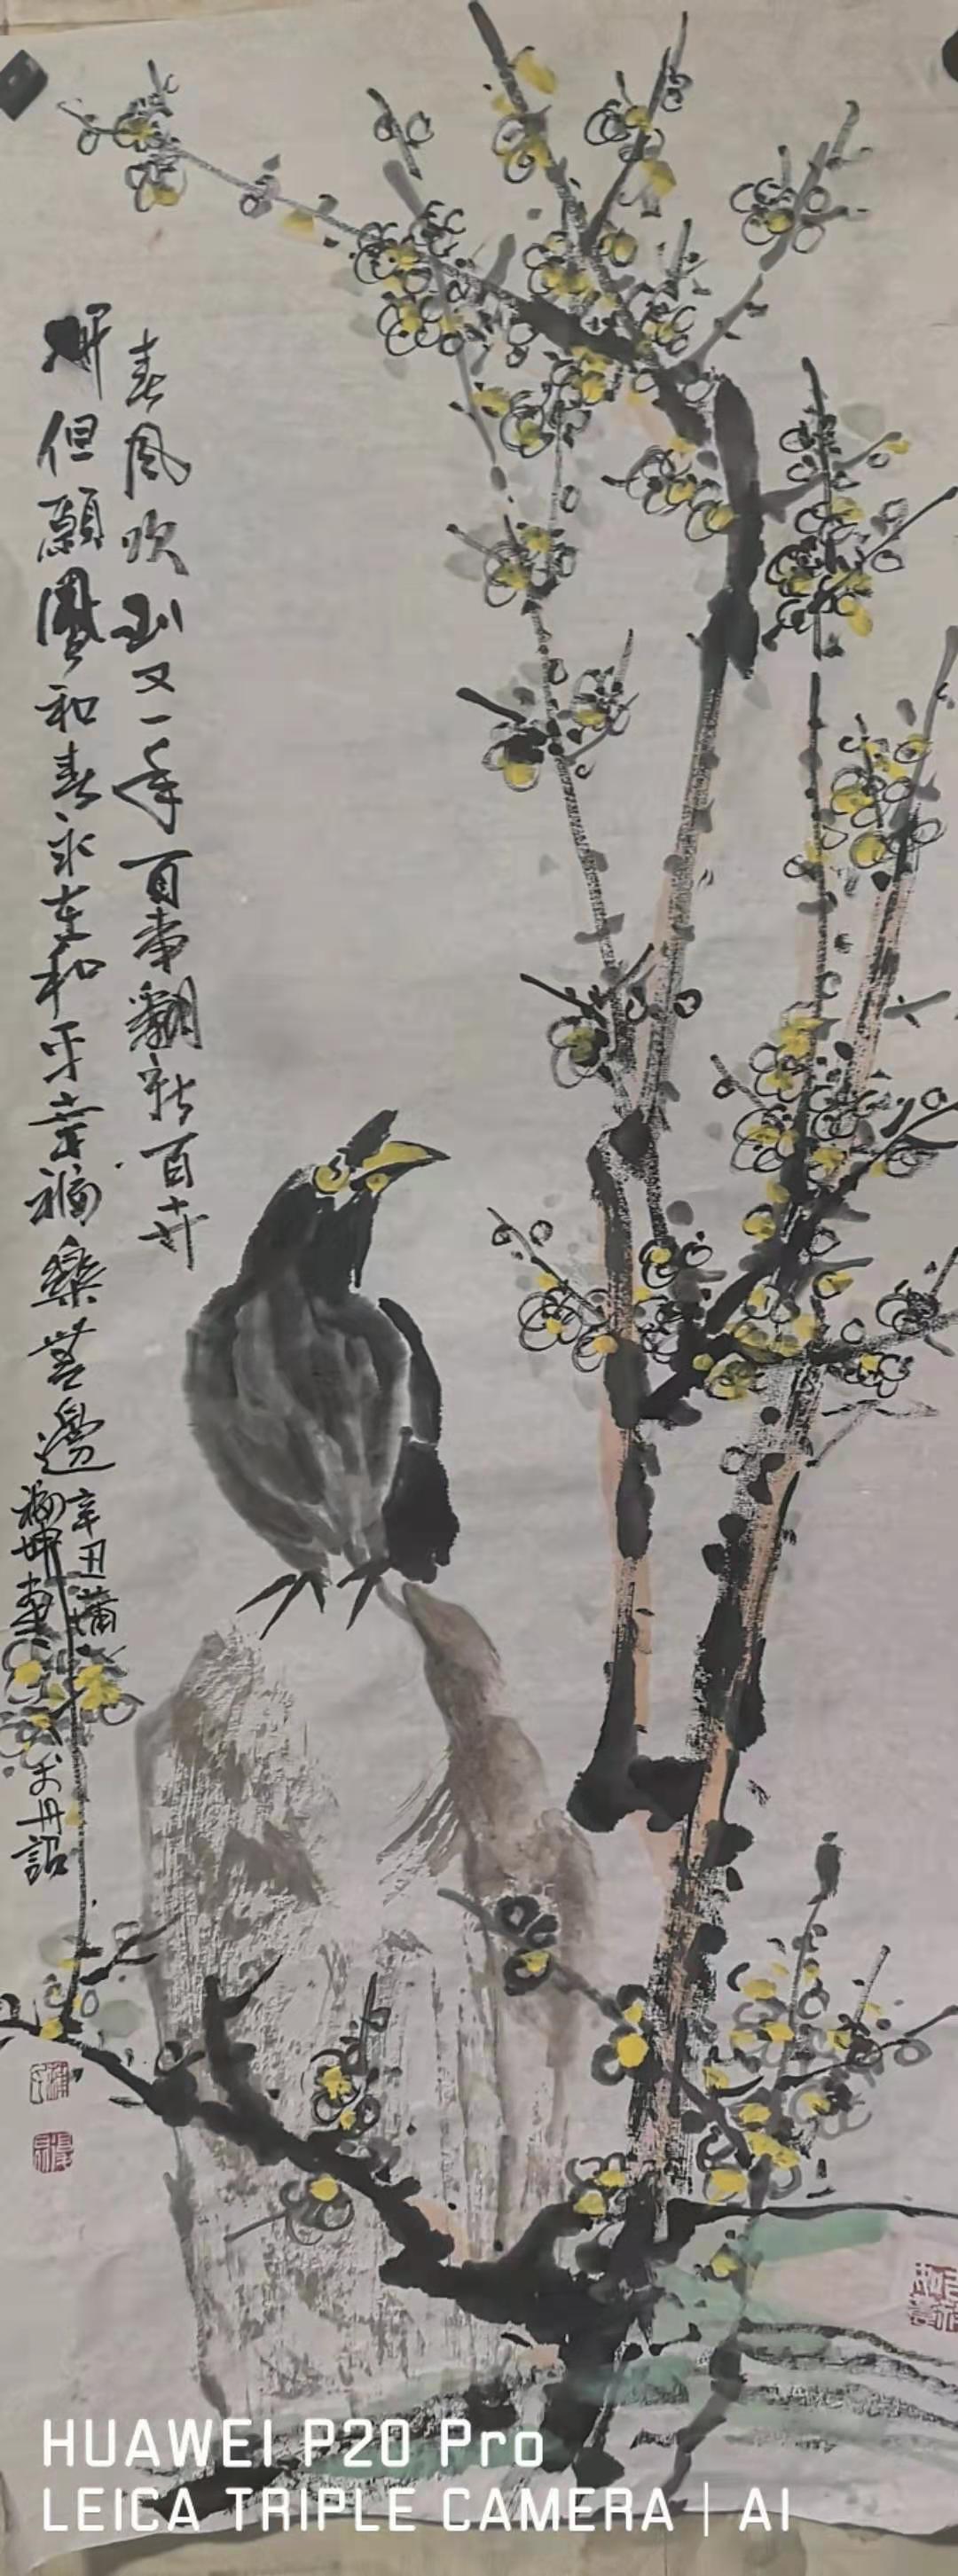 春風吹到又一年百事翻新百卉
妍但願和春永在和平幸福樂無邊
辛丑蒲
福坤畫于丹詔
HUAWEI P20 Pro
LEICA TRIPLE CAMERA | AI